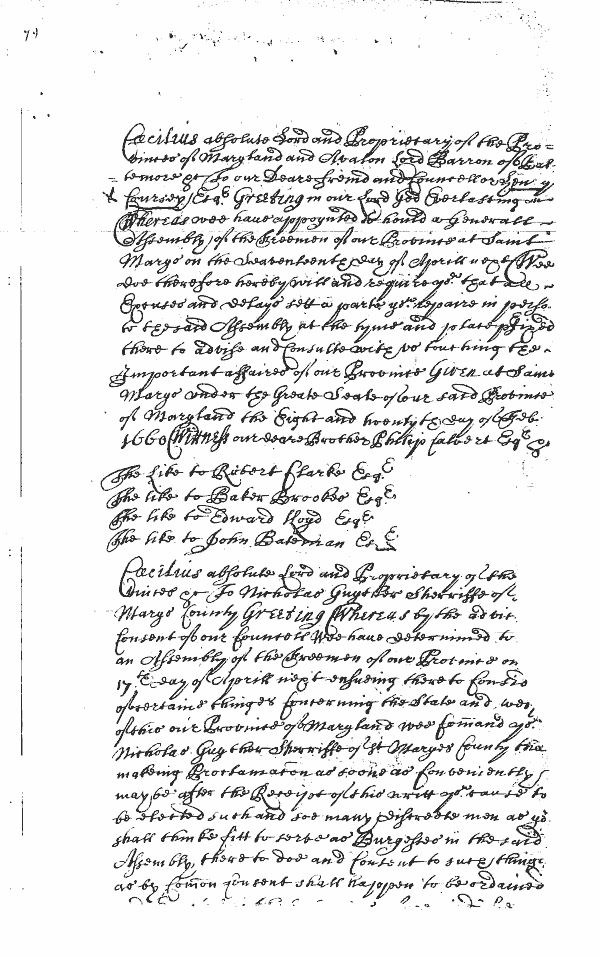 79
Cæcilius absolute Lord and Proprietary of the Pro=
vinces of Maryland and Avalon Lord Barron of Bal=
=temore &c To our Deare freind and Councellor Henry
Coursey Esqr Greeting in our Lord God Everlasting
Whereas wee have appoynted to hould a Generall
Assembly of the Freemen of our Province at Saint
Marys on the Seaventeenth day of Aprill next Wee
doe therefore hereby will and require yo.r that all
Expenses and delays sett a parte yo.r repaire in person
to the said Assembly at the tyme and place pfixed
there to advise and Consulte with us touching the
Important affaires of our Province Given at Saint
Marys under the Greate Seale of our said Province
of Maryland the Eight and twentyth day of Feb:
1660 Wittness our deare Brother Philip Calvert Esqr &c
The Like to Robert Clarke Esqr
The like to Baker Brookes Esqr
The like to Edward Lloyd Esqr
The like to John Bateman Esqr
Cæcilius absolute Lord and Proprietary of the
vinces &c To Nicholas Guyther Sherriffe of
Marys County Greeting Whereas by the advic
Consent of our Councell Wee have determined to
an Assembly of the Freemen of our Province on
17th day of Aprill next ensueing there to Consid
of certaine things Concerning the State and wel
of this our Province of Maryland wee Comand yo.r
Nicholas Guyther Sherriffe of St Maryes County tha
makeing Proclamation as soone as Conveniently
may be after the Receipt of this writt yo.r cause to
be elected such and soe many discreete men as yo.r
shall thinke fitt to serve as Burgesses in the said
Assembly, there to doe and Consent to such things
as by Comon Consent shall happen to be ordained